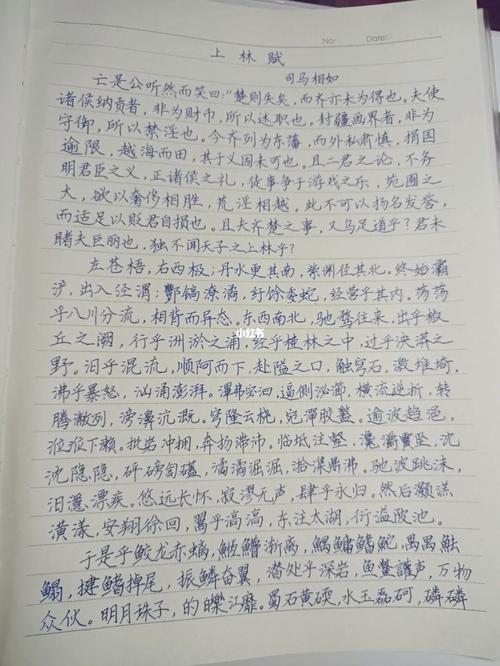 No:
Date:
上林赋
司马相如
亡是公听然而笑曰:“楚则失矣,而齐亦未为得也。夫使
诸侯纳贡者,非为财币,所以述职也。封疆画界者,非为
守御,所以禁淫也。今齐列为东藩,而外私肃慎,捐国
逾限,越海而田,其于义固未可也。且二君之论,不务
明君臣之义,正诸侯之礼,徒事争于游戏之乐,苑囿之
大,欲以奢侈相胜,荒淫相越。此不可以扬名发誉,
而适足以贬君自损也。且夫齐楚之事,又乌足道乎?君未
睹夫巨丽也,独不闻天子之上林乎?
左苍梧,右西极;丹水更其南,紫渊径其北。终始灞
浐,出入泾渭;酆镐潦潏,纡馀委蛇,经营乎其内。荡荡
乎八川分流,相背而异态。东西南北,驰骛往来,出乎椒
丘之阙,行乎洲淤之浦,经乎桂林之中,过乎泱漭之
野。汩乎混流,顺阿而下,赴隘之口,触穹石,激堆埼,
沸乎暴怒,汹涌澎湃。滭弗宓汩,逼侧泌瀄,横流逆折,转
腾潎洌,滂濞沆溉。穹隆云桡,宛潬胶盭。逾波趋浥,
涖涖下濑。批岩冲拥,奔扬滞沛。临坻注壑,瀺灂霣坠,沈
沈隐隐,砰磅訇礚,潏潏淈淈,湁潗鼎沸。驰波跳沫,
汩㴔漂疾。悠远长怀,寂漻无声,肆乎永归。然后灏溔
潢漾,安翔徐回,翯乎滈滈,东注太湖,衍溢陂池。
于是乎鲛龙赤螭,䱎䲛渐离,鰅鳙鰬魠,禺禺魼
鳎,揵鳍掉尾,振鳞奋翼,潜处乎深岩,鱼鳖讙声,万物
众伙。明月珠子,的皪江靡。蜀石黄碝,水玉磊砢,磷磷
小红书